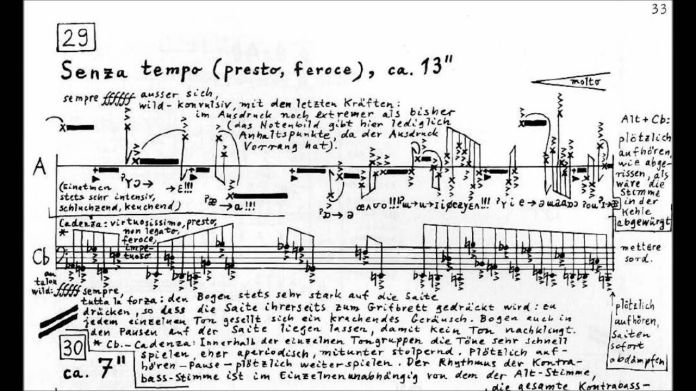 33
29
Senza tempo (presto, feroce), ca. 13"
molto
sempre ffffff ausser sich,
wild-konvulsiv, mit den letzten Kräften:
im Ausdruck noch extremer als bisher
(das Notenbild gibt hier lediglich
Anhaltspunkte, da der Ausdruck
Vorrang hat).
Alt + Cb:
plötzlich
aufhören,
wie abge-
rissen, als
wäre die
Stimme
in der
Kehle
abgewürgt
A
(Einatmen
stets sehr intensiv,
schluchzend, keuchend)
Cadenza: virtuosissimo, presto,
* non legato,
feroce,
impe-
tuoso
Cb
mettere
sord.
am
talon
wild: ffffff sempre,
tutta la forza: den Bogen stets sehr stark auf die Saite
drücken, so dass die Saite ihrerseits zum Griffbrett gedrückt wird: zu
jedem einzelnen Ton gesellt sich ein krachendes Geräusch. Bogen auch in
den Pausen auf der Saite liegen lassen, damit kein Ton nachklingt.
plötzlich
aufhören,
Saiten
sofort
abdämpfen
30
ca. 7"
* Cb.-Cadenza: Innerhalb der einzelnen Tongruppen die Töne sehr schnell
spielen, eher aperiodisch, mitunter stolpernd. Plötzlich auf-
hören - Pause - plötzlich weiterspielen. Der Rhythmus der Kontra-
bass-Stimme ist im Einzelnen unabhängig von dem der Alt-Stimme,
die gesamte Kontrabass-